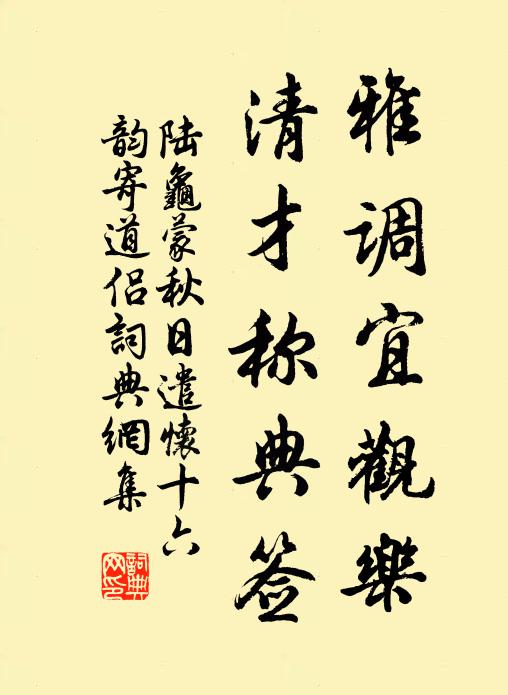 雅调宜觀樂
清才称典签
陆龜蒙秋日遣懷十六
韵寄道侣詞典網集
詞典网印